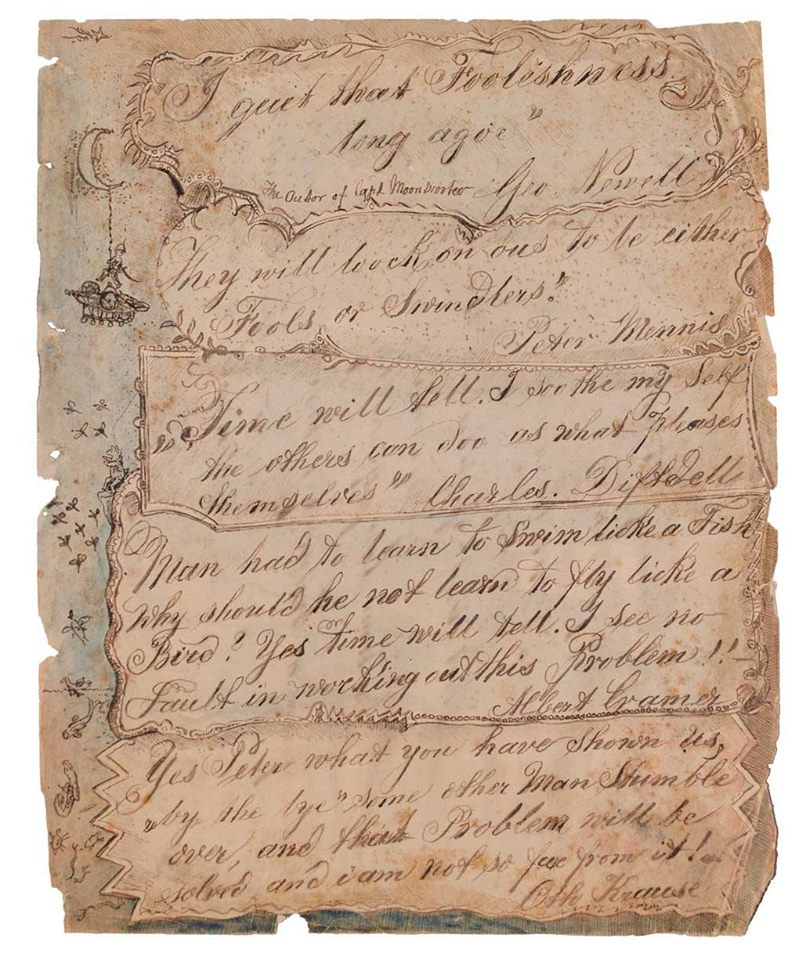 I quet that Fooleshness
long agoe"
The Outor of Capt. Moonbroker Geo Newell
They will loock on ous to be either
Fools or Swindlers!
Peter Mennis
„Time will tell. I soothe my Self
the others can doo as what pleases
themselves" Charles.
Man had to learn to Swim licke a Fish
why should he not learn to fly licke a
Bird? Yes time will tell. I see no
Fault in working out this Problem!!
Albert Cramer
Yes Peter what you have shown us,
„by the bye" some other Man Stumble
over, and that Problem will be
solved, and i am not so far from it!
Krause